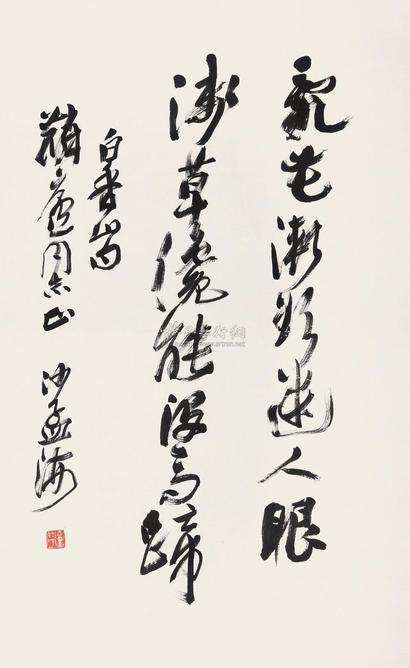 亂花漸欲迷人眼
淺草纔能沒馬蹄
白香山句
同志正 沙孟海
www.artron.net